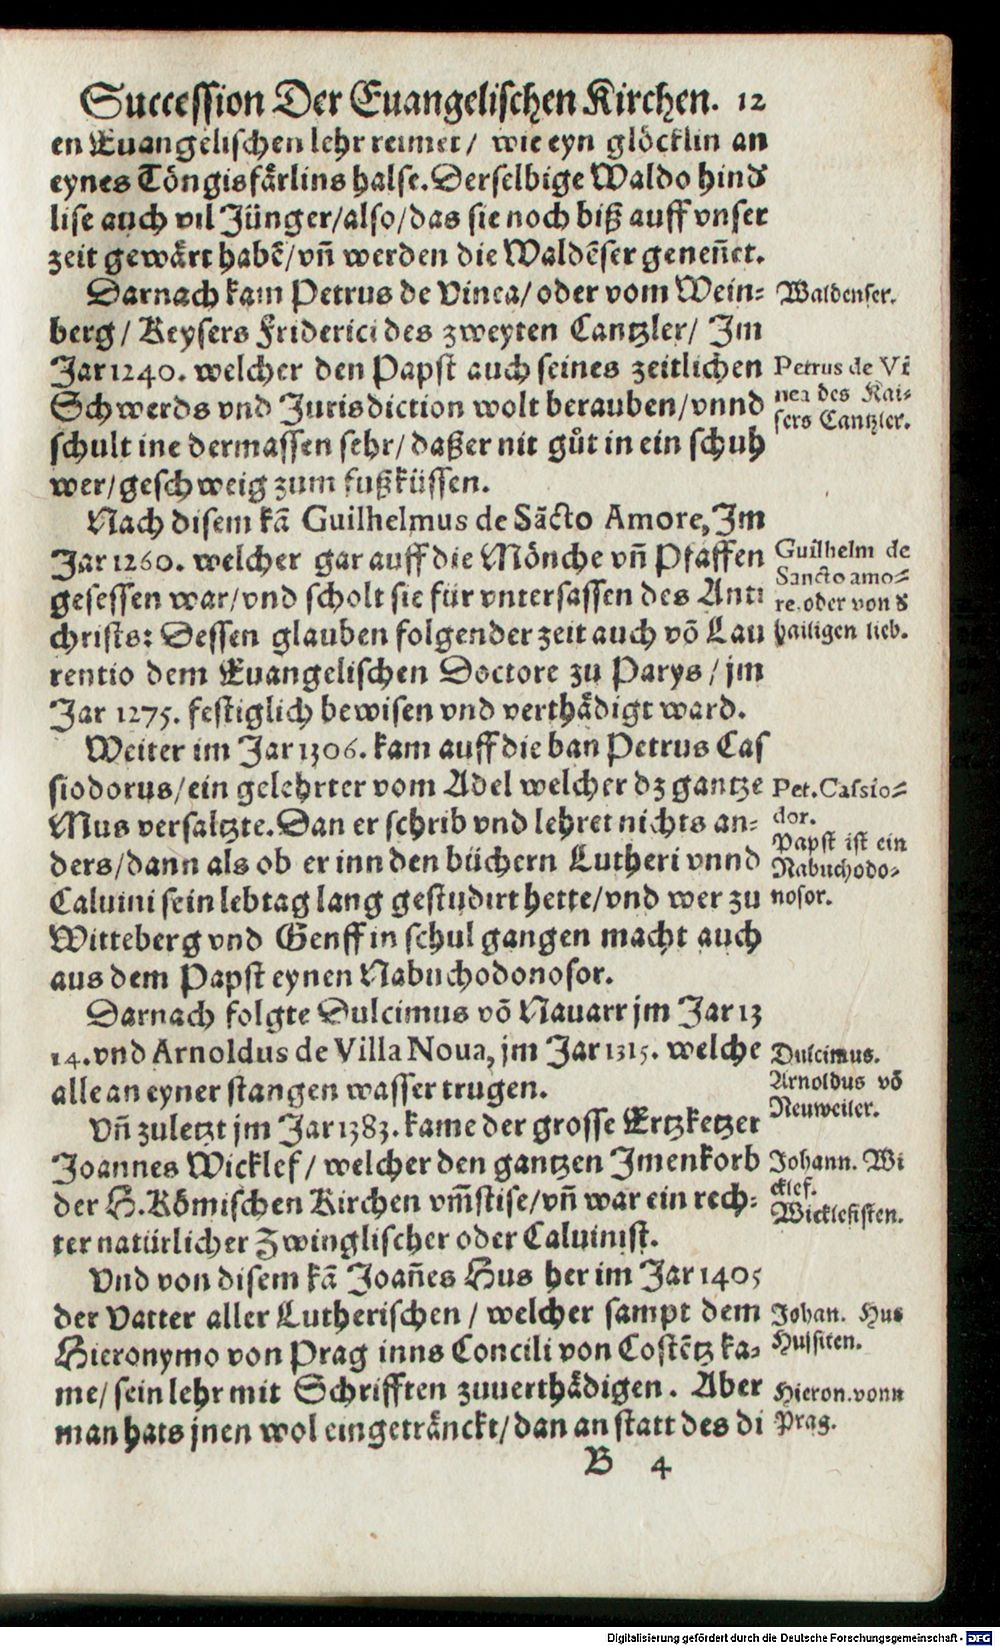 Succession Der Euangelischen Kirchen. 12
en Euangelischen lehr reimet / wie eyn glöcklin an
eynes Töngisfärlins halse. Derselbige Waldo hind
lise auch vil Jünger/also/das sie noch biß auff vnser
zeit gewärt habē/vn̄ werden die Waldēser genen̄et.
Waldenser.
Darnach kam Petrus de Vinea/oder vom Wein⸗
berg / Keysers Friderici des zweyten Cantzler/ Im
Jar 1240. welcher den Papst auch seines zeitlichen
Schwerds vnd Jurisdiction wolt berauben/vnnd
schult ine dermassen sehr/daßer nit gůt in ein schuh
wer/geschweig zum fußküssen.
Petrus de Vi
nea des Kai⸗
sers Cantzler.
Nach disem kā Guilhelmus de Sācto Amore, Im
Jar 1260. welcher gar auff die Mönche vn̄ Pfaffen
gesessen war/vnd scholt sie für vntersassen des Anti
christs: Dessen glauben folgender zeit auch vō Lau
rentio dem Euangelischen Doctore zu Parys / jm
Jar 1275. festiglich bewisen vnd verthädigt ward.
Guilhelm de
Sancto amo⸗
re. oder von d
hailigen lieb.
Weiter im Jar 1306. kam auff die ban Petrus Cas
siodorus/ein gelehrter vom Adel welcher dz gantze
Mus versaltzte. Dan er schrib vnd lehret nichts an⸗
ders/dann als ob er inn den büchern Lutheri vnnd
Caluini sein lebtag lang gestudirt hette/vnd wer zu
Witteberg vnd Genff in schul gangen macht auch
aus dem Papst eynen Nabuchodonosor.
Pet. Cassio⸗
dor.
Papst ist ein
Nabuchodo⸗
nosor.
Darnach folgte Dulcimus vō Nauarr jm Jar 13
14. vnd Arnoldus de Villa Noua, jm Jar 1315. welche
alle an eyner stangen wasser trugen.
Dulcimus.
Arnoldus vō
Neuweiler.
Vn̄ zuletzt jm Jar 1383. kame der grosse Ertzketzer
Joannes Wicklef / welcher den gantzen Imenkorb
der H. Römischen Kirchen vm̄stise/vn̄ war ein rech⸗
ter natürlicher Zwinglischer oder Caluinist.
Johann. Wi
cklef.
Wicklefisten.
Vnd von disem kā Joan̄es Hus her im Jar 1405
der Vatter aller Lutherischen / welcher sampt dem
Hieronymo von Prag inns Concili von Costētz ka⸗
me/ sein lehr mit Schrifften zuuerthädigen. Aber
man hats jnen wol eingetränckt/dan an statt des di
Johan. Hus
Hussiten.
Hieron. vonn
Prag.
B 4
Digitalisierung gefördert durch die Deutsche Forschungsgemeinschaft - DFG